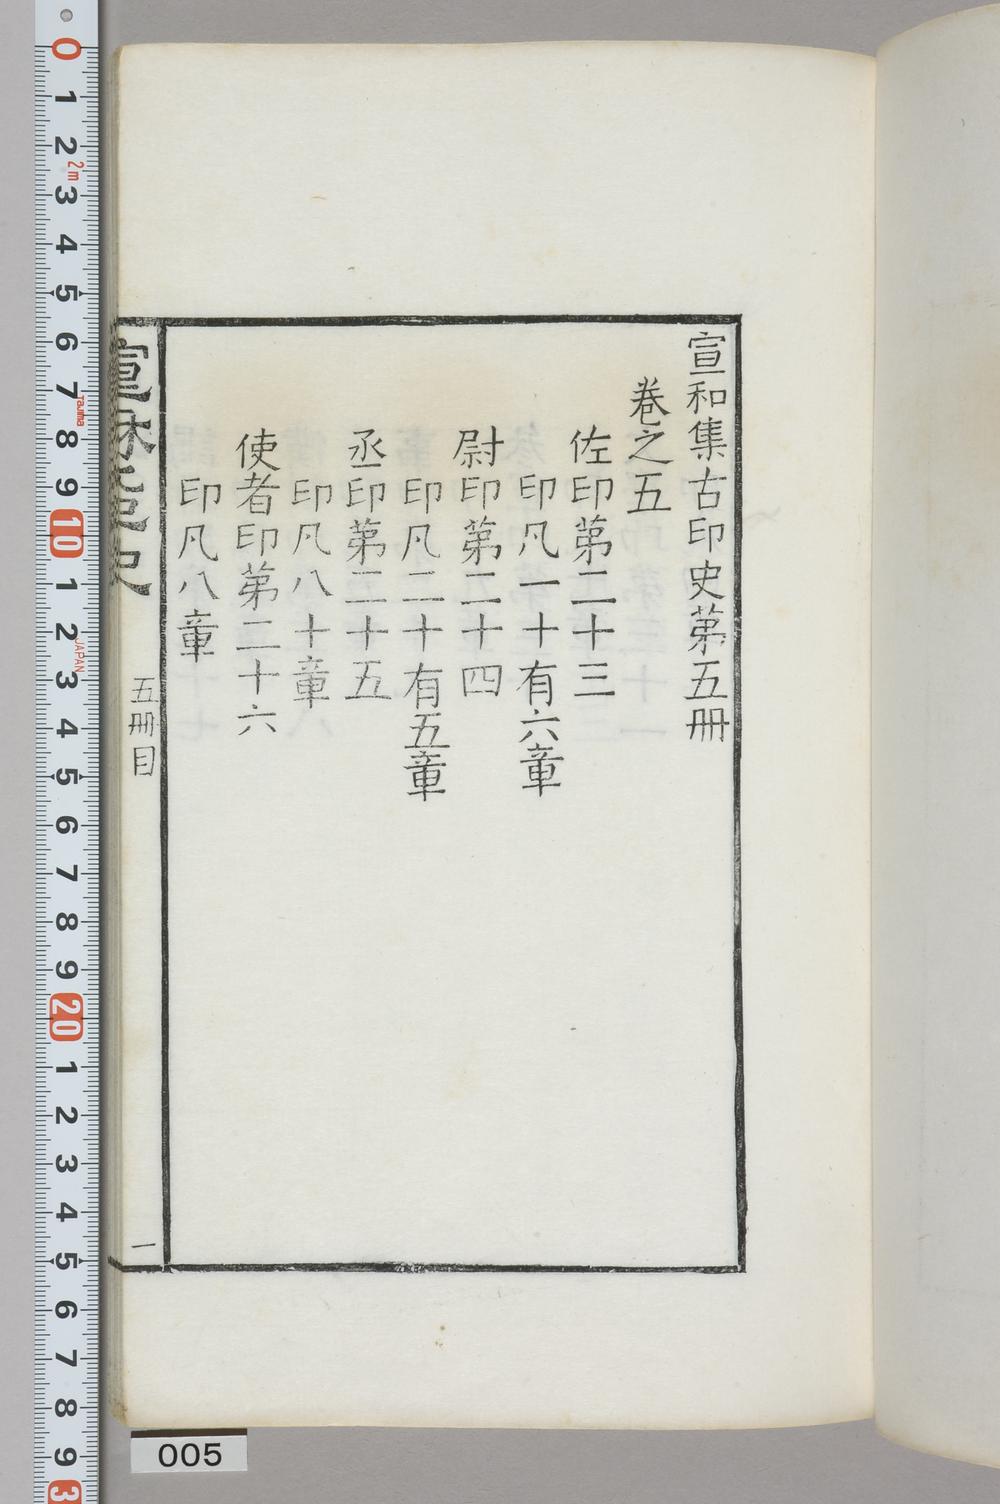 宣和集古印史第五冊
卷之五
佐印第二十三
印凡一十有六章
尉印第二十四
印凡二十有五章
丞印第二十五
印凡八十章
使者印第二十六
印凡八章
五冊目
一
005
0 1 2 3 4 5 6 7 8 9 10 1 2 3 4 5 6 7 8 9 20 1 2 3 4 5 6 7 8 9 3
2m
Tajima
JAPAN